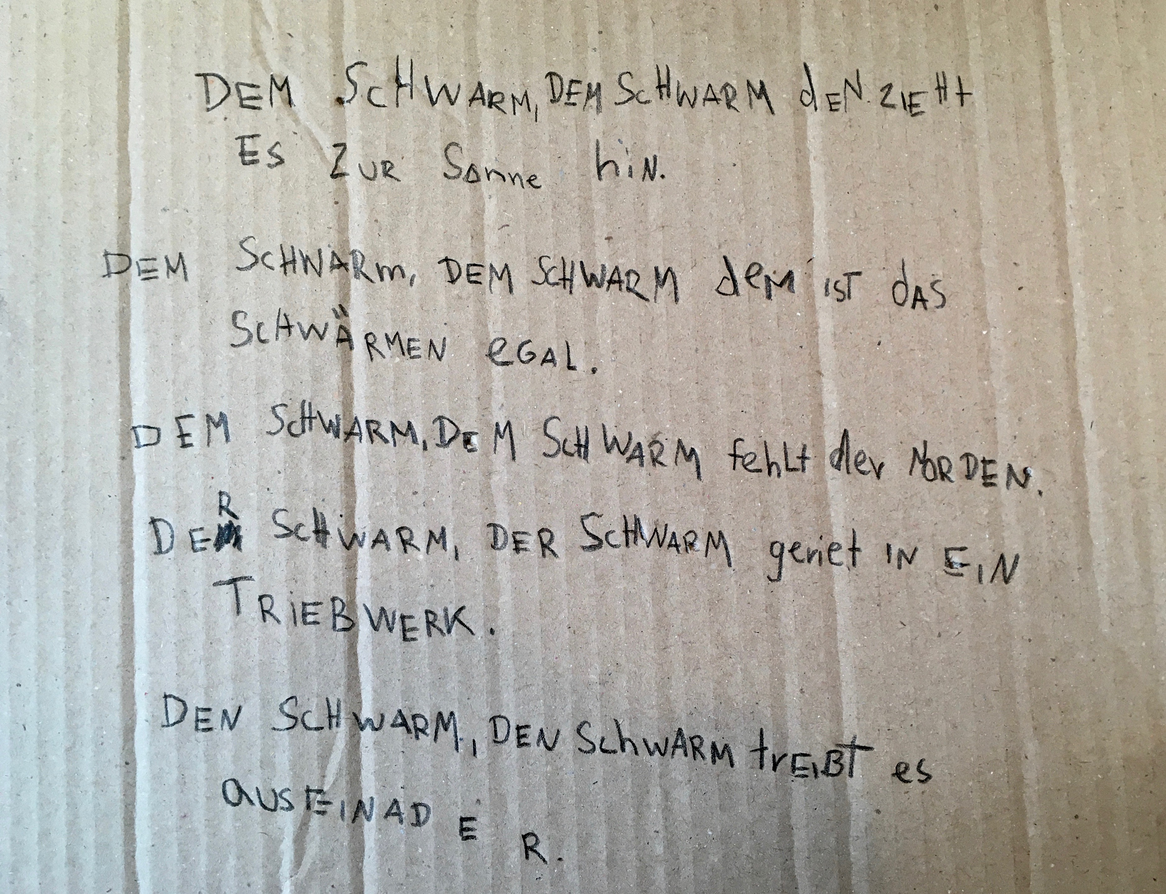 DEM SCHWARM, DEM SCHWARM dEN ZIEHt
ES ZUR Sonne hiN.
DEM SCHWARm, DEM SCHWARM deM iST dAS
SCHWÄRMEN eGAL.
DEM SCHWARM, DEM SCHWARM fehLt der NORDEN.
DER SCHWARM, DER SCHWARM geriet IN EIN
TRiEBWERK.
DEN SCHWARM, DEN SChWARM trEIBT es
aUSEINADER.